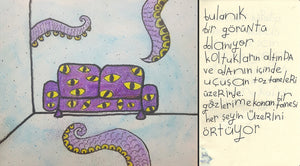 bulanık
bir görüntü
dolanıyor
koltukların altında
ve odanın içinde
uçuşan toz taneleri
üzerinde.
gözlerime konan tanesi
her şeyin üzerini
örtüyor